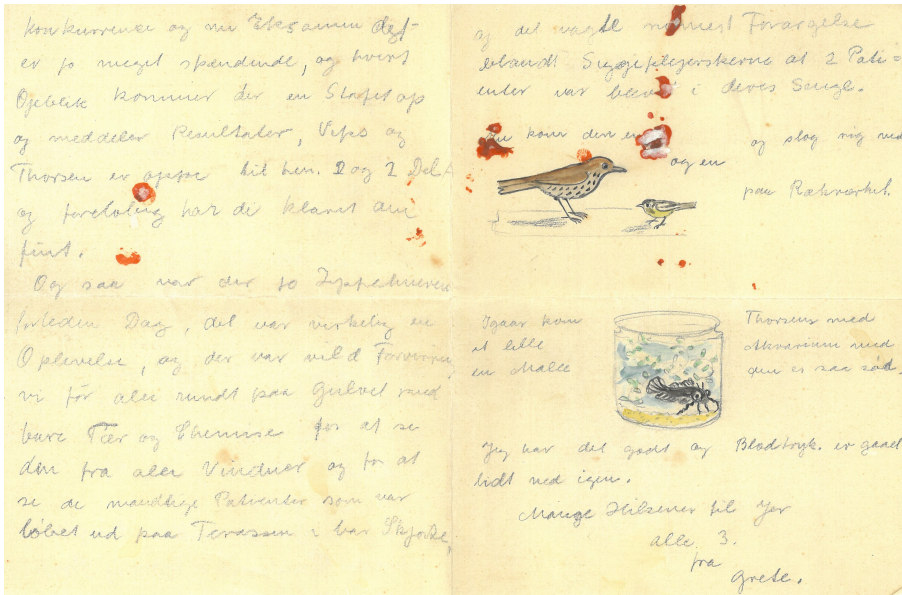 Konkurrence og nu Eksamen det
er jo meget spændende, og hvert
Øjeblik kommer der en Stafet op
og meddeler Resultater, Vips og
Thorsen er oppe til hen. 1 og 2 Del
og foreløbig har de klaret den
fint.
Og saa var der jo Zeppelineren
forleden Dag, det var virkelig en
Oplevelse, og der var vild Forvirring
vi før alle rundt paa Gulvet med
bare Tær og Chemise for at se
den fra alle Vinduer og for at
se de mandlige Patienter som var
løbet ud paa Terassen i bar Skjorte,
og det vagte nærmest Forargelse
blandt Sygeplejerskerne at 2 Pati-
enter var blevet i deres Senge.
Nu kom der en og slog sig ned
og en
paa Rækværket.
Igaar kom Thorsen med
et lille Akvarium med
en Malle den er saa sød.
Jeg har det godt og Blodtryk. er gaaet
lidt ned igen.
Mange Hilsener til Jer
alle 3.
fra
Grete.